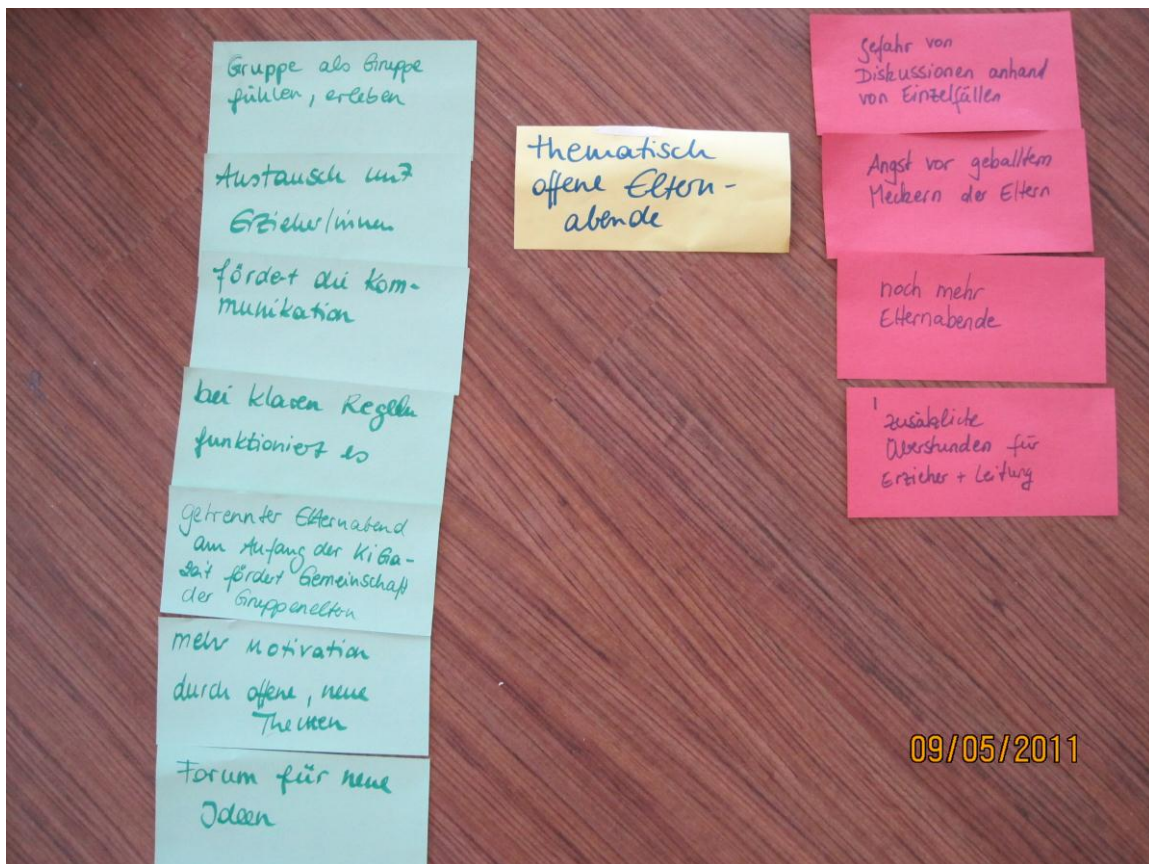 Gruppe als Gruppe
fühlen, erleben
Austausch mit
Erzieher/innen
fördert die Kom-
munikation
bei klaren Regeln
funktioniert es
getrennter Elternabend
am Anfang der KiGa-
Zeit fördert Gemeinschaft
der Gruppeneltern
mehr Motivation
durch offene, neue
Themen
Forum für neue
Ideen
thematisch
offene Eltern-
abende
Gefahr von
Diskussionen anhand
von Einzelfällen
Angst vor geballtem
Meckern der Eltern
noch mehr
Elternabende
zusätzliche
Überstunden für
Erzieher + Leitung
09/05/2011